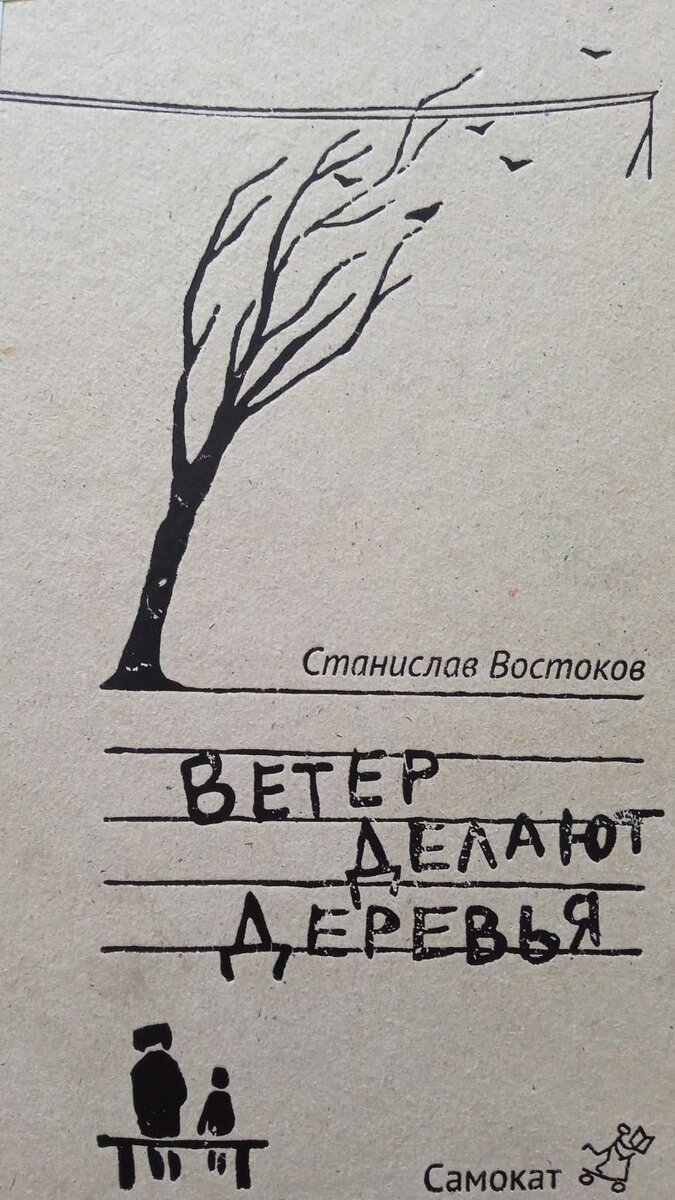 Станислав Востоков
ВЕТЕР
ДЕЛАЮТ
ДЕРЕВЬЯ
Самокат